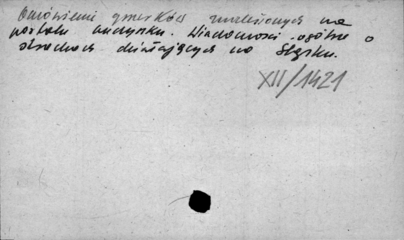 Omówienie gmerków umieszczonych na
portalu budynku. Wiadomości ogólne o
strzechach działających na Śląsku.
XII/1421